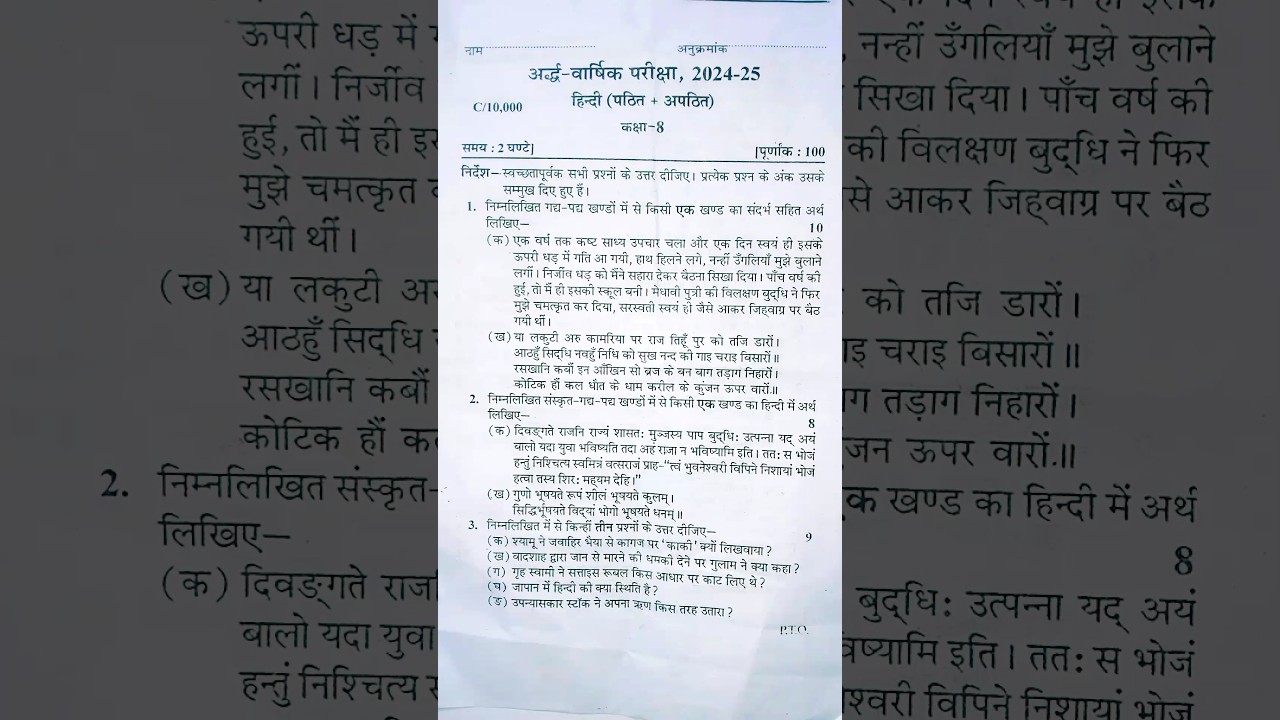 नाम अनुक्रमांक
अर्द्ध-वार्षिक परीक्षा, 2024-25
C/10,000 हिन्दी (पठित + अपठित)
कक्षा-8
समय : 2 घण्टे] [पूर्णांक : 100
निर्देश— स्वच्छतापूर्वक सभी प्रश्नों के उत्तर दीजिए। प्रत्येक प्रश्न के अंक उसके
सम्मुख दिए हुए हैं।
1. निम्नलिखित गद्य-पद्य खण्डों में से किसी एक खण्ड का संदर्भ सहित अर्थ
लिखिए— 10
(क) एक वर्ष तक कष्ट साध्य उपचार चला और एक दिन स्वयं ही इसके
ऊपरी धड़ में गति आ गयी, हाथ हिलने लगे, नन्हीं उँगलियाँ मुझे बुलाने
लगीं। निर्जीव धड़ को मैंने सहारा देकर बैठना सिखा दिया। पाँच वर्ष की
हुई, तो मैं ही इसकी स्कूल बनी। मेधावी पुत्री की विलक्षण बुद्धि ने फिर
मुझे चमत्कृत कर दिया, सरस्वती स्वयं ही जैसे आकर जिह्वाग्र पर बैठ
गयी थीं।
(ख) या लकुटी अरु कामरिया पर राज तिहूँ पुर को तजि डारों।
आठहुँ सिद्धि नवहुँ निधि को सुख नन्द की गाइ चराइ बिसारों॥
रसखानि कबौं इन आँखिन सो ब्रज के बन बाग तड़ाग निहारों।
कोटिक हौं कल धौत के धाम करील के कुंजन ऊपर वारों.॥
2. निम्नलिखित संस्कृत-गद्य-पद्य खण्डों में से किसी एक खण्ड का हिन्दी में अर्थ
लिखिए— 8
(क) दिवङ्गते राजनि राज्यं शासतः मुञ्जस्य पाप बुद्धिः उत्पन्ना यद् अयं
बालो यदा युवा भविष्यति तदा अहं राजा न भविष्यामि इति। ततः स भोजं
हन्तुं निश्चित्य स्वमित्रं वत्सराजं प्राह-“त्वं भुवनेश्वरी विपिने निशायां भोजं
हत्वा तस्य शिरः मह्यम देहि।”
(ख) गुणो भूषयते रूपं शीलं भूषयते कुलम्।
सिद्धिर्भूषयते विद्यां भोगो भूषयते धनम्॥
3. निम्नलिखित में से किन्हीं तीन प्रश्नों के उत्तर दीजिए— 9
(क) श्यामू ने जवाहिर भैया से कागज पर ‘काकी’ क्यों लिखवाया ?
(ख) बादशाह द्वारा जान से मारने की धमकी देने पर गुलाम ने क्या कहा ?
(ग) गृह स्वामी ने सत्ताइस रूबल किस आधार पर काट लिए थे ?
(घ) जापान में हिन्दी की क्या स्थिति है ?
(ङ) उपन्यासकार स्टॉक ने अपना ऋण किस तरह उतारा ?
P.T.O.